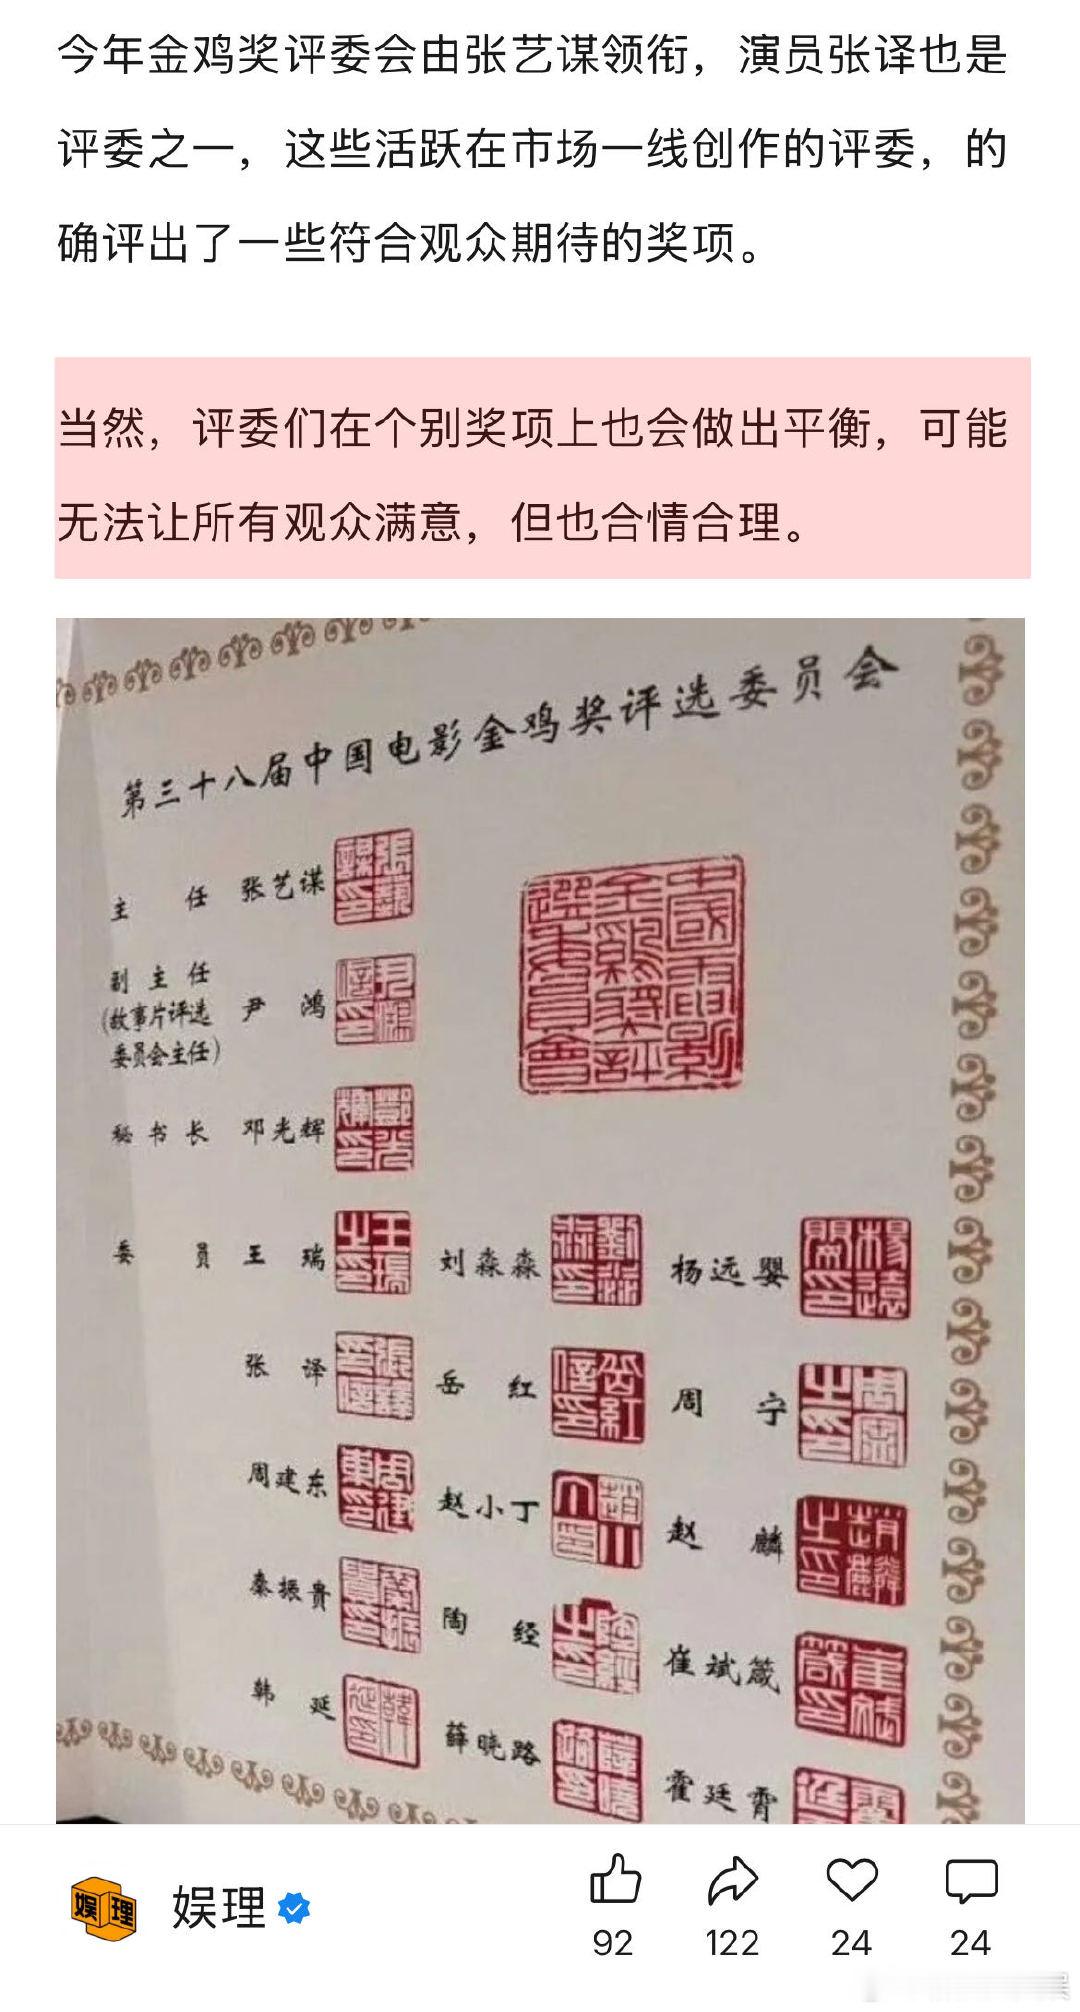 今年金鸡奖评委会由张艺谋领衔，演员张译也是
评委之一，这些活跃在市场一线创作的评委，的
确评出了一些符合观众期待的奖项。
当然，评委们在个别奖项上也会做出平衡，可能
无法让所有观众满意，但也合情合理。
第三十八届中国电影金鸡奖评选委员会
主任 张艺谋
副主任
(故事片评选
委员会主任)
尹鸿
秘书长 邓光辉
委员 王瑞 刘淼淼 杨远婴
张译 岳红 周宁
周建东 赵小丁 赵麟
秦振贵 陶经 崔斌箴
韩延 薛晓路 霍廷霄
中國電影
金鷄獎評
選委員會
娱理
娱理
92 122 24 24